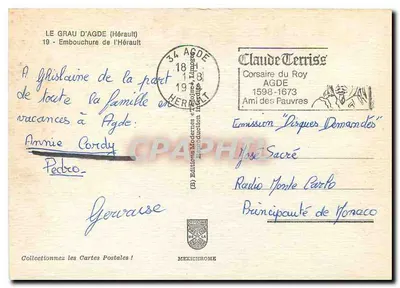 LE GRAU D'AGDE (Hérault)
19 - Embouchure de l'Hérault
34 AGDE
HERAULT
Claude Terriss
Corsaire du Roy
AGDE
1598-1673
Ami des Pauvres
A Ghislaine de la part
de toute la famille en
vacances à Agde.
Annie Cordy
Pedro
Gervaise
Emission "Disques Demandés"
José Sacré
Radio Monte Carlo
Principauté de Monaco
Collectionnez les Cartes Postales !
MEXICHROME